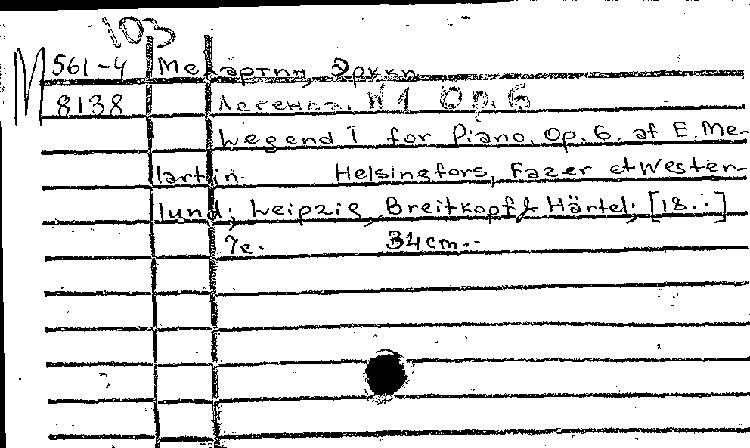 103
М 561-4 Мелартин, Эркки
8138 Легенда. N 1 Op. 6
Legend I for Piano. Op. 6. af E. Me-
lartin. Helsingfors, Fazer et Wester-
lund; Leipzig, Breitkopf & Härtel; [18..]
7с. 34 cm.